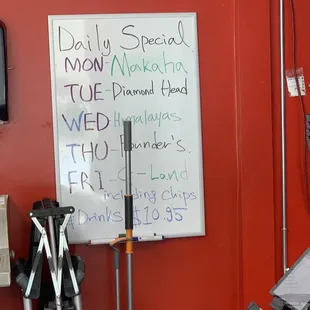 Daily Special
MON-Makaha
TUE-Diamond Head
WED-Himalayas
THU-Founder's.
FRI.-G-Land
including chips
Drinks $10.95